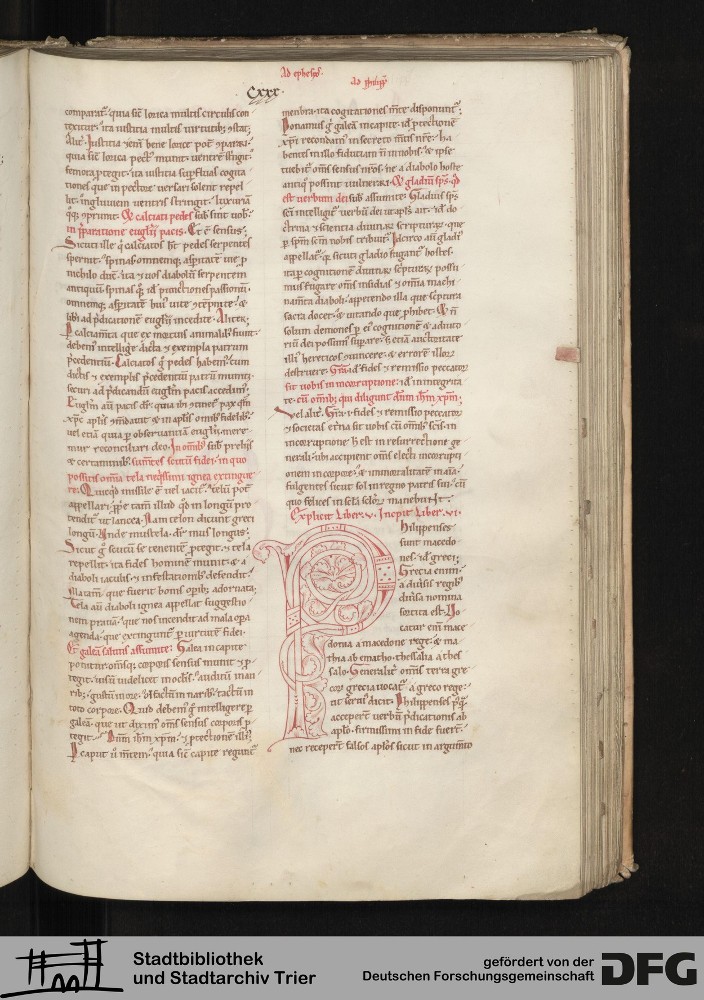 Ad ephesios.
ad philipp
Cxxx.
comparat᷑. quia sic̄ lorica multis circulis con
texitur. ita iusticia multis uirtutibꝫ
Iusticia etenī bene lorice pot
quia sic̄ lorica pect᷑ munit. uentrē stringit.
femora ꝓtegit. ita iusticia suꝑfluas cogita
tiones que in pectore uersari solent repel
lit. ingluuiem uentris stringit. luxuriā
qꝫ opprimit. Et calciati pedes
in p̄paratione euglii pacis. Et ē sensus.
Sicuti ille q̄ calciatos ht̄ pedes serpentes
spernit. spinas omnemqꝫ asperitatē uie ꝓ
nichilo ducit. ita & uos diaboli serpentem
antiquū spinas qꝫ id ē punctiones passionū.
omnemqꝫ asperitatē hui᷑ uite ɔtempnite. &
libi ad p̄dicationē euglii incedite. Aliter.
Calciam̄ta que ex mortuis animalibꝫ fiunt.
debem᷑ intellige. dicta & exempla patrum
p̄cedentiū. Calciatos g̊ pedes habem᷑. cum
dictis & exemplis p̄cedentiū patrū muniti.
securi ad p̄dicandū eugliū pacis accedim᷑.
Eugliū aū pacis dr̄. quia ibi ɔtinet᷑ pax quā
xp̄c aplis ɔmdauit & in aplis omibꝫ fidelibꝫ.
uel etiā quia ꝑ obseruantiā euglii mere
mur reconciliari deo. In omibꝫ
& certaminibꝫ. sumentes scutū fidei. in quo
possitis omīa tela neqissimi ignea extingue
re. Quicqd missile ē uel iactū. telū pot
appellari. ꝓprie tam̄ illud qd in longū pro
tenditur ut lancea. Nam telon dicunt greci
longū. Unde mustela. dr̄ mus longus.
Sicut g̊ scutū se tenentē ꝓtegit. & tela
repellit. ita fides hominē munit. & a
diaboli iaculis. & infestationibꝫ defendit.
si tam̄ que fuerit bonis opibꝫ adornata.
Tela aū diaboli ignea appellat suggestio
nem prauā. que nos incendit ad mala opa
agenda. que extingunt᷑ ꝑ uirtutē fidei.
Et galeā salutis assumite. Galea in capite
ponitur. omsqꝫ corporis sensus munit & ꝓ
tegit. uisū uidelicet in oclis. auditū in au
ribꝫ. gustū in ore. olfactū in naribꝫ. tactū in
toto corpore. Quid debem᷑ g̊ intelligere ꝑ
galeā. que ut diximꝰ om̄s sensus corporis ꝓ
tegit. Dn̄m ihm xpm. & ꝓtectionē illi᷑.
Caput ū mentem. quia sic̄ capite regunt᷑
membra. ita cogitationes m̄te disponunt᷑.
Ponamus g̊ galeā in capite. id ē ꝓtectionē
xp̄i recondam᷑ in secreto m̄tis nr̄e. ha
bentes in illo fiduciam n̄ in nobis. & ipse
tuebit᷑ om̄s sensus nr̄os. ne a diabolo hoste
antiq̊ possint uulnerari. Et gladiū sp̄s. qd
est uerbum dei. assumite. Gladius sp̄s
sc̄i intelligit᷑ uerbū dei ut apls ait. id ē do
ctrina & scientia diuinar scripturar. que
ꝑ spm̄ scm̄ nobis tribuit᷑. Idcirco aū gladi᷑
appellat᷑. quia sicuti gladio fugant᷑ hostes.
ita ꝑ cognitionē diuinar scripturar possu
mus fugare om̄s insidias & omīa machi
nam̄ta diaboli. appetendo illa que scriptura
sacra docet. & uitando que ꝓhibet. Et n̄
solum demones ꝑ ei᷑ cognitionē & adiuto
riū dei possim᷑ supare. sꝫ etiā auctoritate
illi᷑ hereticos ɔuincere. & errorē illor
destruere. Grā. id ē fides & remissio peccator
sit uobis in incorruptione. id ē in integrita
te. cū omibꝫ qui diligunt dn̄m ihm xpm.
Vel aliter. Grā. & fides & remissio peccator
& societas et̄na sit uobis cū omibꝫ sc̄is in
incorruptione. h̄ est in resurrectione ge
nerali. ubi accipient om̄s electi incorrupti
onem in corpore. & inmortalitatē in aīa.
fulgentes sicut sol in regno patris sui. cū
quo felices in scl̄a scl̄or manebunt.
Explicit Liber. v. Incipit Liber. vi.
Philipenses
sunt macedo
nes. id ē greci.
Grecia enim
a diūsis regibꝫ
diūsa nomina
sortita est. Uo
catur eni mace
donia a macedone rege. & ma
thia ab ematho. thessalia a thes
salo. Generalit᷑ om̄s terra gre
cor grecia uocat᷑. a greco rege.
ut seruius dicit. Philipenses
accepere uerbū p̄dicationis ab
aplo. firmissimi in fide fuer̄t.
nec recepert̄ falsos aplos sicut in argumto
Stadtbibliothek
und Stadtarchiv Trier
gefördert von der
Deutschen Forschungsgemeinschaft
DFG